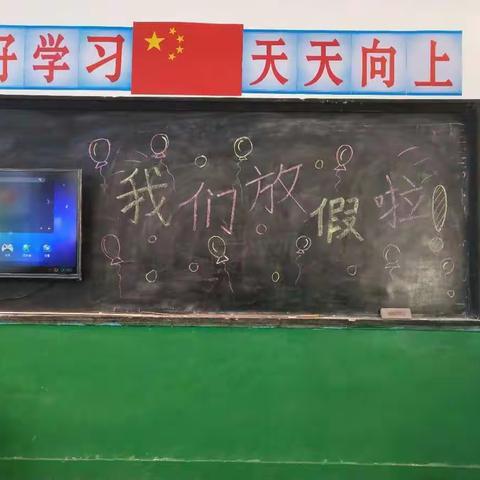 好学习 天天向上
我们放假啦!